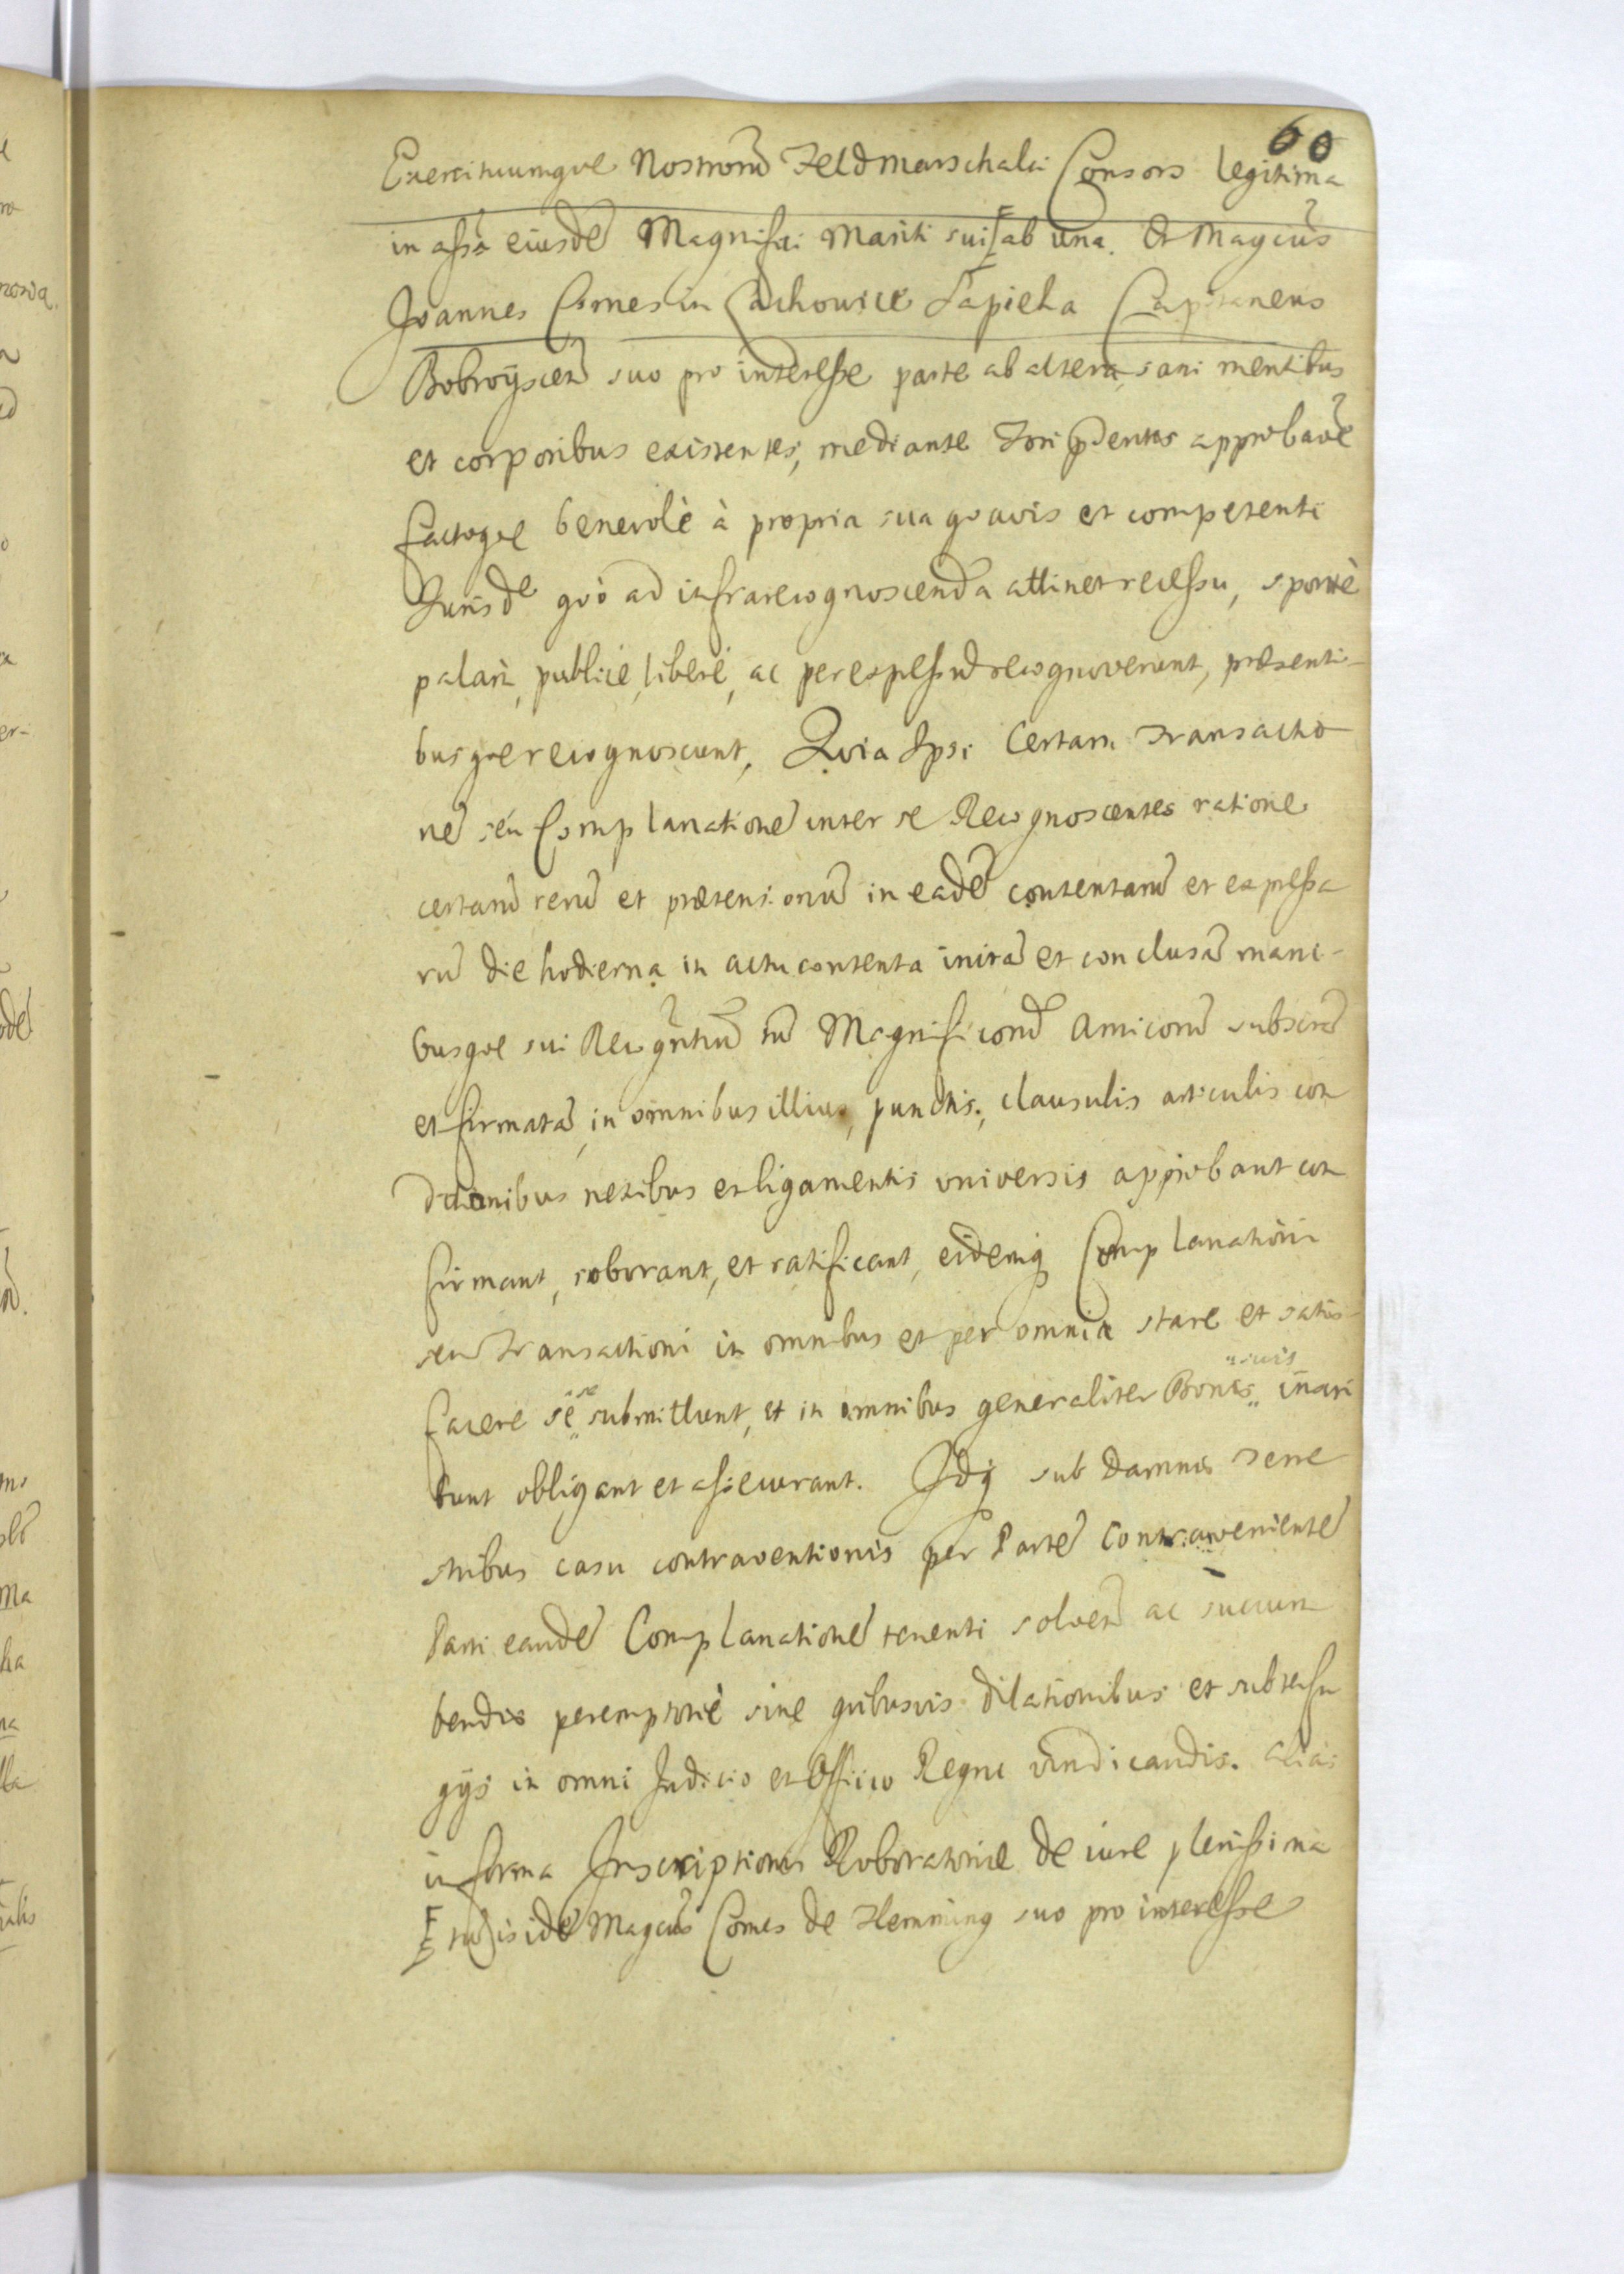 60
Exercituumque Nostrorũ Feldmarschalci Consors legitima
in assã eiusdẽ Magnifici Mariti sui ab una. Et Magcũs
Joannes Comes in Czachowice Sapieha Capitaneus
Bobroyscen̄ suo pro interesse parte ab altera, sani mentibus
et corporibus existentes, mediante approbavẽ
factoque benevolè à propria sua quavis et competenti
Jurisde quò ad infrarecognoscenda attinet recessu, spontè
palam̀, publicè, liberè, ac per expressũ recognoverunt, præsenti-
busque recognoscunt, Quia Ipsi Certam Transactio
nẽ seu Complanationẽ inter se Recognoscentes ratione
certarũ rerũ et prætensionũ in eadẽ contentarũ et expressa
rũ die hodierna in actu contenta initã et conclusã mani-
busque sui Recogntiũ tũ Magnificorũ Amicorũ subscrẽ
et firmatã, in omnibus illius, punctis, clausulis articulis con
ditionibus nexibus et ligamentis universis approbant con
firmant, roborant, et ratificant, eidemq̃ Complanationi
seu Transactioni in omnibus et per omnia stare et satis-
facere sese submittunt, et in omnibus generaliter Bonis suis inscri
bunt obligant et assecurant. Idq̃ sub Damnis terre
stribus casu contraventionis per Partẽ Contravenientẽ
Parti eandẽ Complanationẽ tenenti solven̄ ac succum
bendis peremptoriè sine quibusvis dilationibus et subterfu
gijs in omni Judicio et Officio Regni vindicandis. alias
in forma Inscriptionis Roboratoriæ de iure plenissima
tũ is idẽ Magcũs Comes de Flemming suo pro interesse